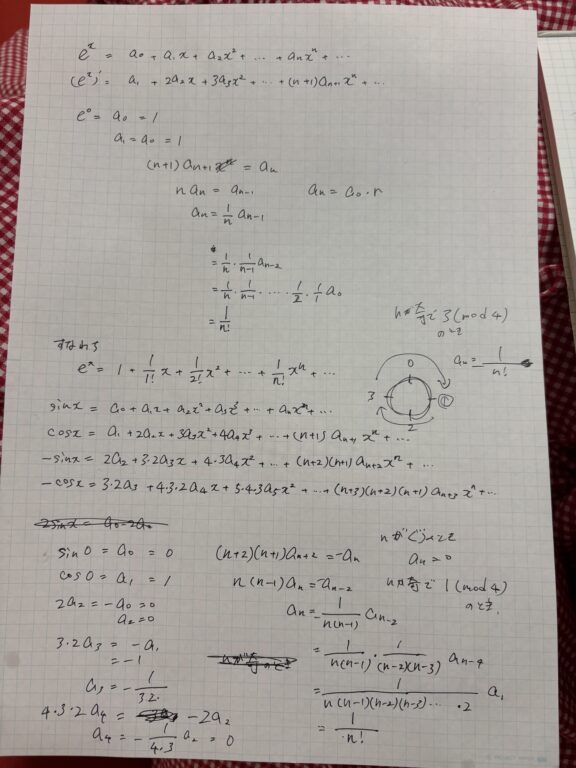 e^x = a0 + a1x + a2x² + … + anx^n + …
(e^x)' = a1 + 2a2x + 3a3x² + … + (n+1)an+1x^n + …
e^0 = a0 = 1
a1 = a0 = 1
(n+1)an+1 = an
nan = an-1
an = a0・r
an = 1/n an-1
= 1/n・1/(n-1) an-2
= 1/n・1/(n-1)・……・1/2・1/1 a0
= 1/n!
nが奇で3(mod4)
のとき
an = 1/n!
0
3
①
2
すなわち
e^x = 1 + 1/1! x + 1/2! x² + … + 1/n! x^n + …
sinx = a0 + a1x + a2x² + a3x³ + … + anx^n + …
cosx = a1 + 2a2x + 3a3x² + 4a4x³ + … + (n+1)an+1x^n + …
-sinx = 2a2 + 3・2a3x + 4・3a4x² + … + (n+2)(n+1)an+2x^n + …
-cosx = 3・2a3 + 4・3・2a4x + 5・4・3a5x² + … + (n+3)(n+2)(n+1)an+3x^n + …
sin0 = a0 = 0
cos0 = a1 = 1
2a2 = -a0 = 0
a2 = 0
3・2a3 = -a1
= -1
a3 = -1/3・2・
4・3・2a4 = -2a2
a4 = -1/4・3 a2 = 0
(n+2)(n+1)an+2 = -an
n(n-1)an = -an-2
an = -1/n(n-1) an-2
= 1/n(n-1)・1/(n-2)(n-3) an-4
= 1/n(n-1)(n-2)(n-3)…・2 a1
= 1/n!
nがぐうのとき
an = 0
nが奇で1(mod4)
のとき